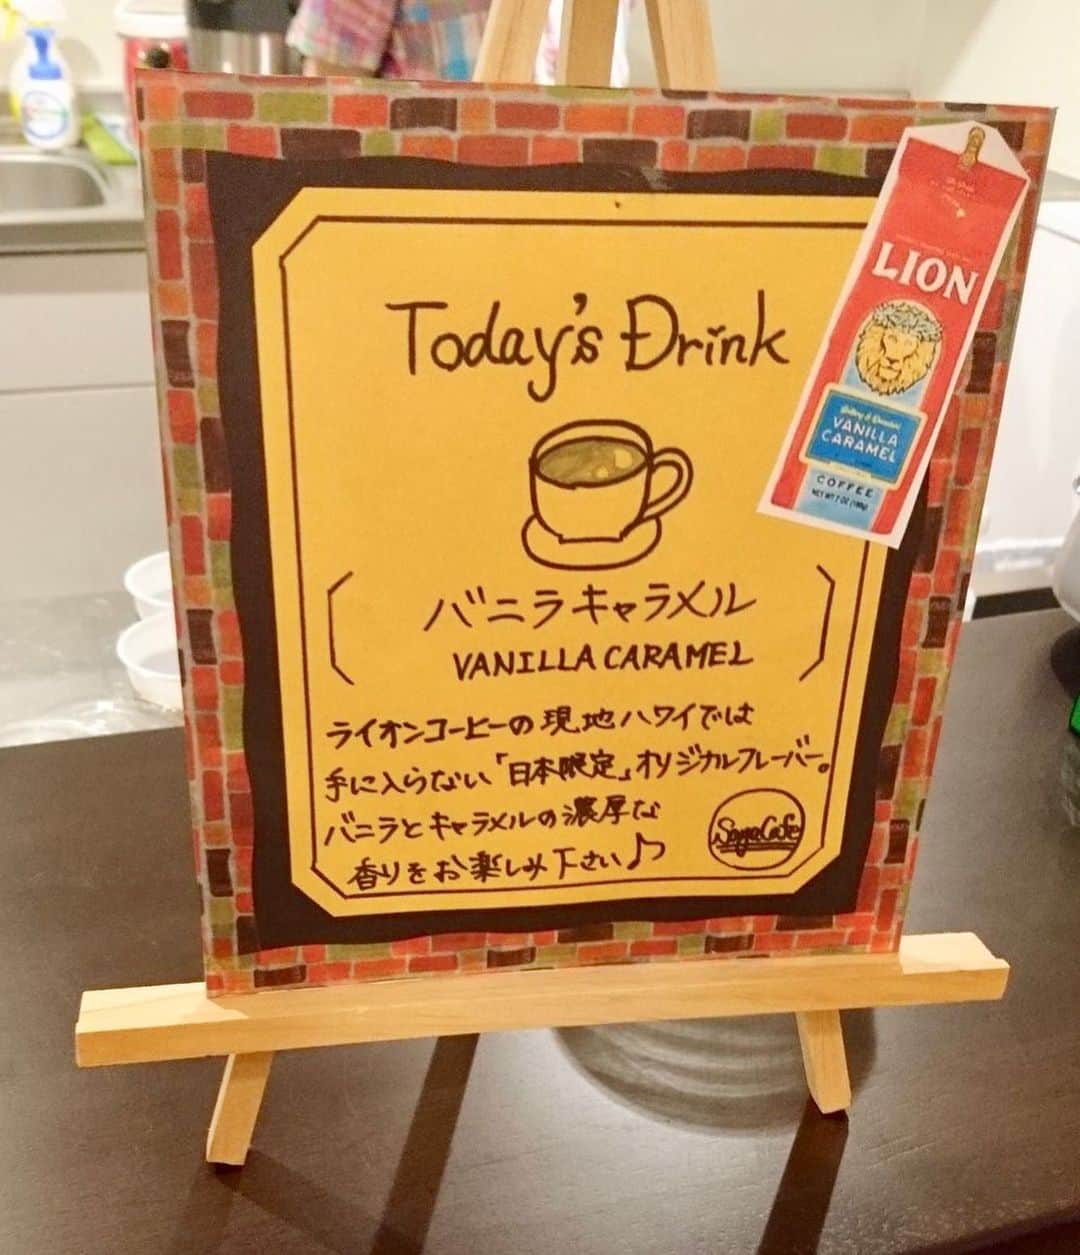 Today's Drink
LION
VANILLA
CARAMEL
COFFEE
NET WT 7 OZ (198g)
バニラキャラメル
VANILLA CARAMEL
ライオンコーヒーの現地ハワイでは
手に入らない「日本限定」オリジナルフレーバー。
バニラとキャラメルの濃厚な
香りをお楽しみ下さい♪
SagaCafe